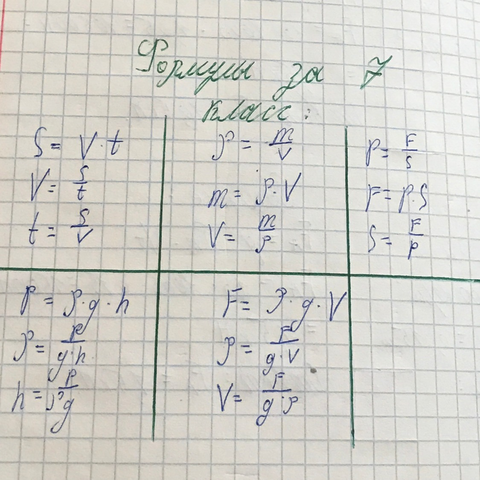 Формулы за 7
класс:
S = V·t
V = S/t
t = S/V
ρ = m/V
m = ρ·V
V = m/ρ
p = F/S
F = p·S
S = F/p
P = ρ·g·h
ρ = P/g·h
h = P/ρ·g
F = ρ·g·V
ρ = F/g·V
V = F/g·ρ